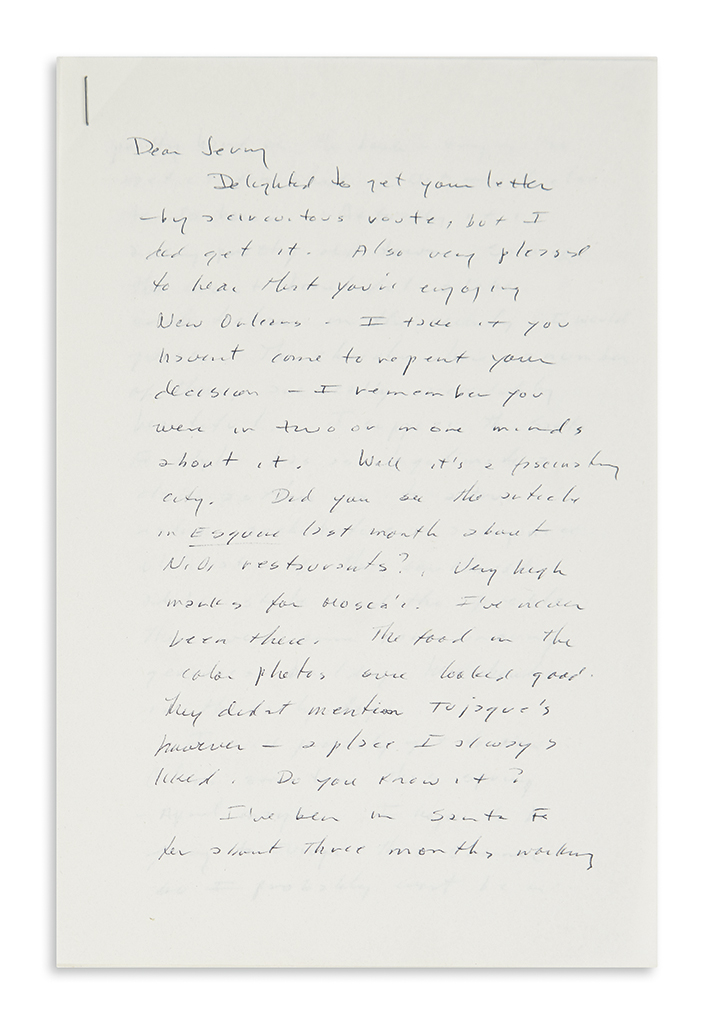 Dear Jerry
Delighted to get your letter
– by a circuitous route, but I
did get it. Also very pleased
to hear that you're enjoying
New Orleans. I take it you
havent come to repent your
decision – I remember you
were in two or more minds
about it. Well it's a fascinating
city. Did you see the article
in Esquire last month about
N.O. restaurants? Very high
marks for Mosca's. I've never
been there. The food in the
color photos sure looked good.
They didnt mention Tujague's
however – a place I always
liked. Do you know it?
I've been in Santa Fe
for about three months working